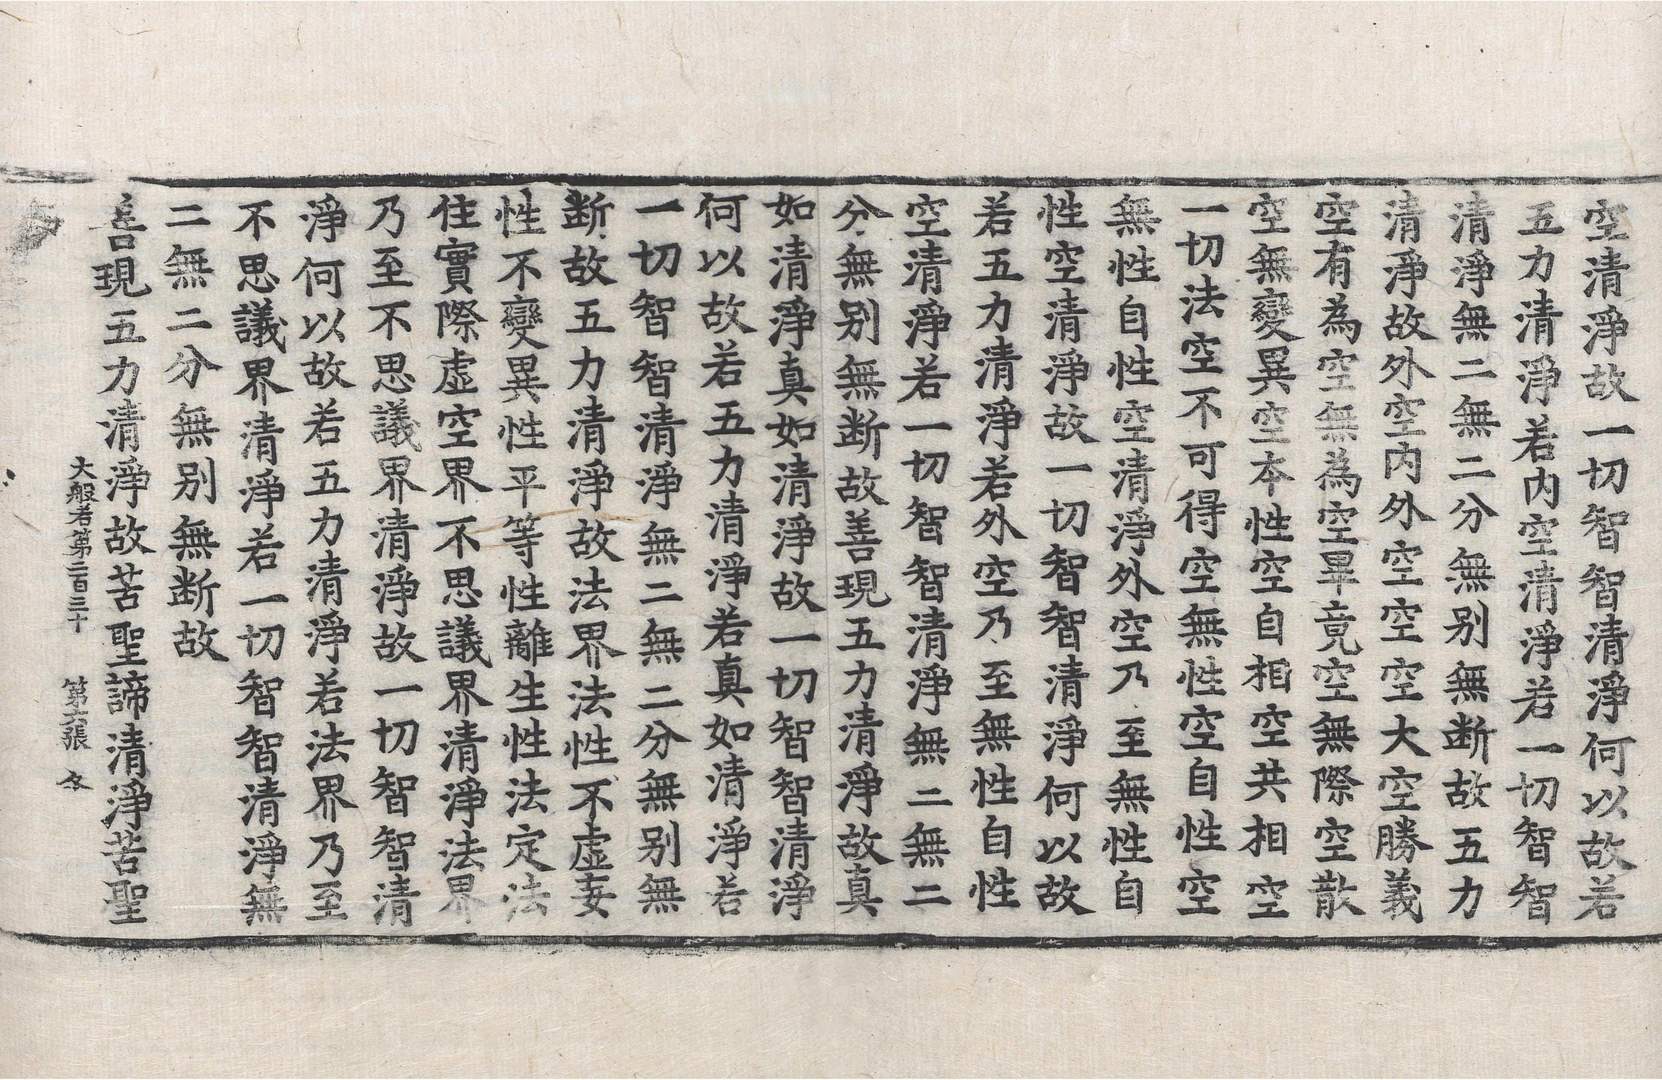 空清淨故一切智智清淨何以故若
五力清淨若內空清淨若一切智智
清淨無二無二分無别無断故五力
清淨故外空內外空空空大空勝義
空有為空無為空畢竟空無際空散
空無變異空本性空自相空共相空
一切法空不可得空無性空自性空
無性自性空清淨外空乃至無性自
性空清淨故一切智智清淨何以故
若五力清淨若外空乃至無性自性
空清淨若一切智智清淨無二無二
分無别無断故善現五力清淨故真
如清淨真如清淨故一切智智清淨
何以故若五力清淨若真如清淨若
一切智智清淨無二無二分無别無
断故五力清淨故法界法性不虛妄
性不變異性平等性離生性法定法
住實際虛空界不思議界清淨法界
乃至不思議界清淨故一切智智清
淨何以故若五力清淨若法界乃至
不思議界清淨若一切智智清淨無
二無二分無别無断故
善現五力清淨故苦聖諦清淨苦聖
大般若第二百三十 第六張